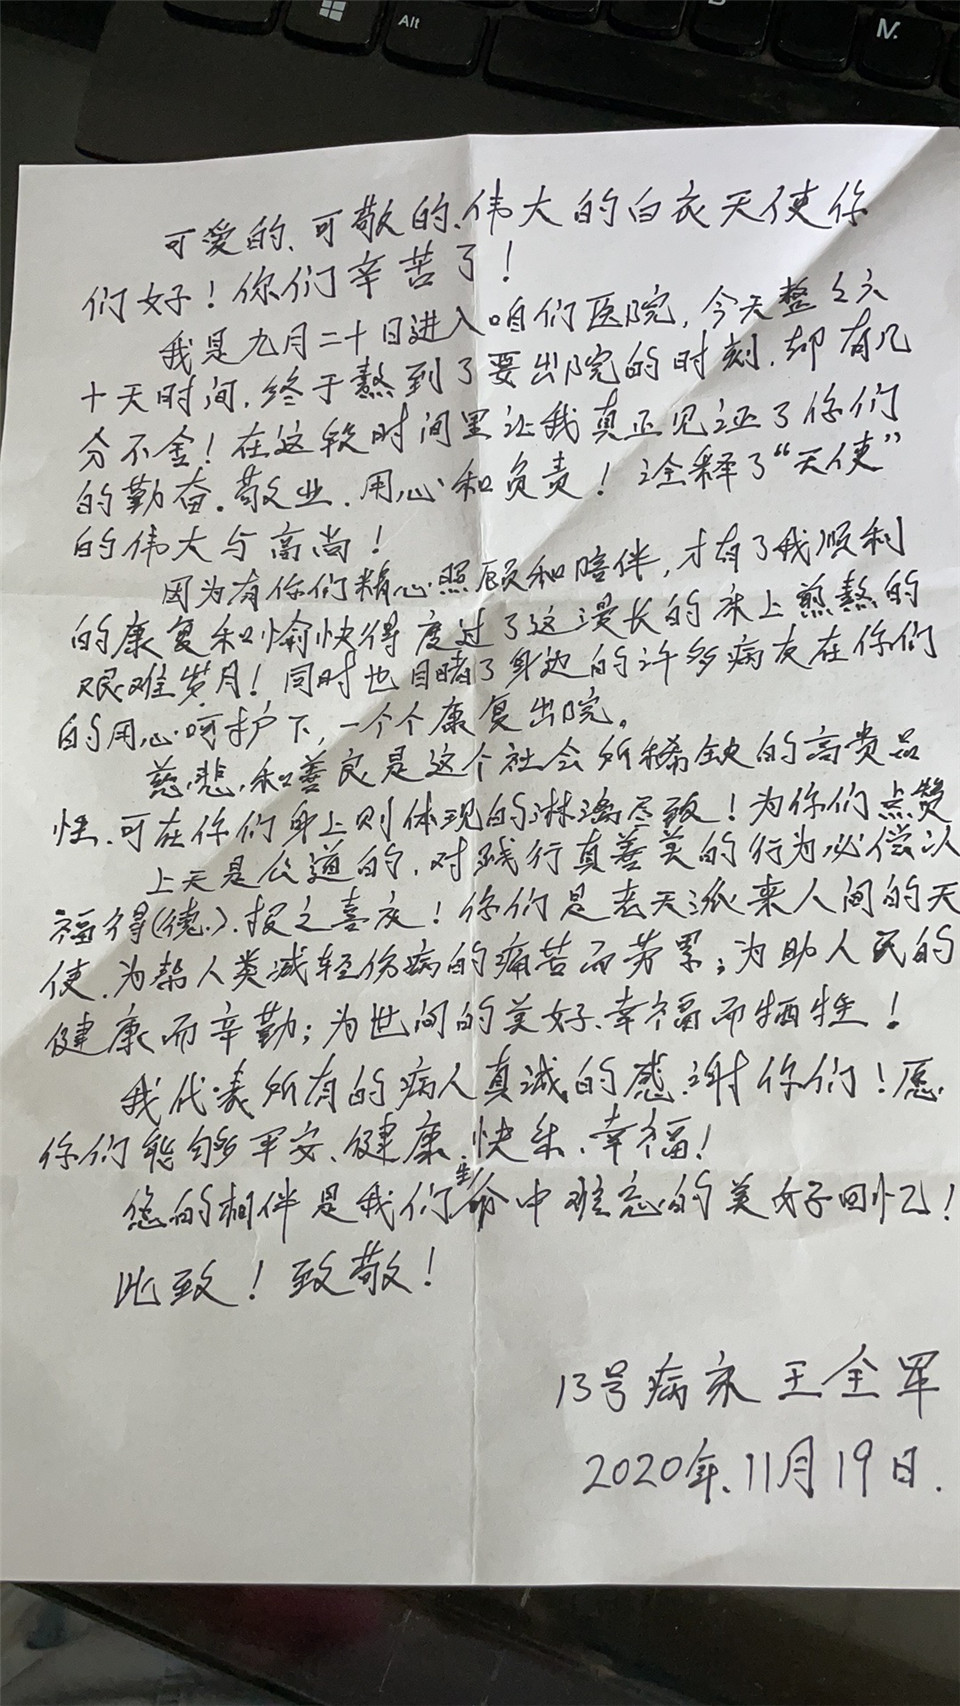 Alt
M
可爱的、可敬的、伟大的白衣天使你
们好！你们辛苦了！
我是九月二十日进入咱们医院，今天整整六
十天时间，终于熬到了要出院的时刻，却有几
分不舍！在这段时间里让我真正见证了你们
的勤奋。敬业、用心和负责！诠释了“天使”
的伟大与高尚！
因为有你们精心照顾和陪伴，才有了我顺利
的康复和愉快得度过了这漫长的床上煎熬的
艰难岁月！同时也目睹了身边的许多病友在你们
的用心呵护下，一个个康复出院。
慈悲和善良是这个社会所稀缺的高贵品
性、可在你们身上则体现的淋漓尽致！为你们点赞
上天是公道的，对践行真善美的行为必偿以
福得（德）、报之喜庆！你们是老天派来人间的天
使、为帮人类减轻伤病的痛苦而劳累；为助人民的
健康而辛勤；为世间的美好、幸福而牺牲！
我代表所有的病人真诚的感谢你们！愿
你们能够平安、健康、快乐、幸福！
您的相伴是我们生命中难忘的美好回忆！
此致！致敬！
13号病床 王全军
2020年、11月19日.